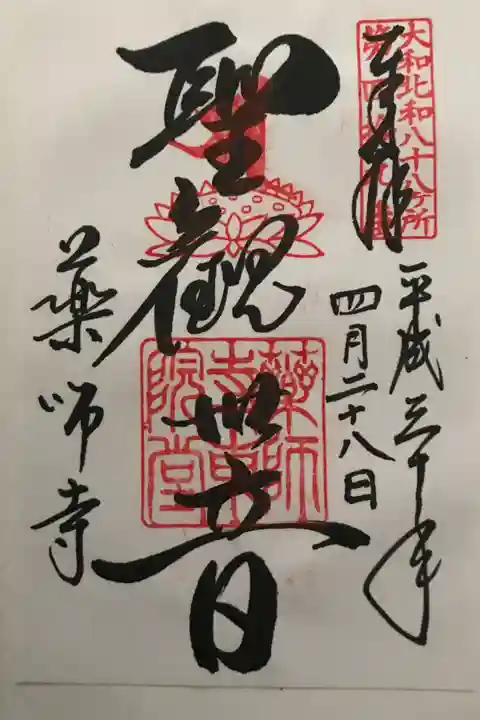 大和北和八十八ケ所
奉拝
平成三十年
四月二十八日
聖觀世音
藥師
寺東
院堂
薬師寺